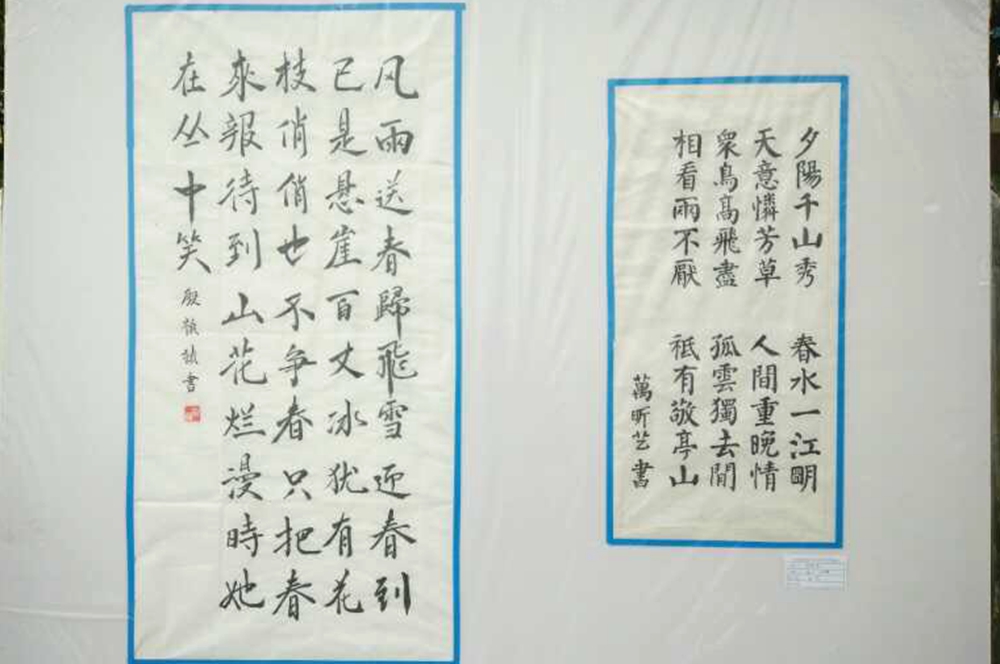 风雨送春歸飛雪迎春到
已是悬崖百丈冰犹有花
枝俏俏也不争春只把春
來報待到山花烂漫時她
在丛中笑
殷 書
夕陽千山秀 春水一江明
天意憐芳草 人間重晚情
衆鳥高飛盡 孤雲獨去閒
相看雨不厭 祗有敬亭山
萬昕艺書